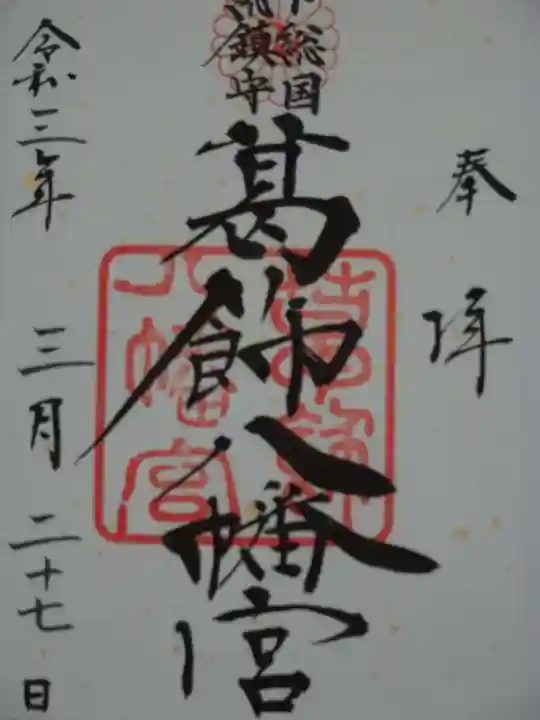 奉拝
下総国
総鎮守
葛飾八幡宮
葛飾
八幡宮
令和三年 三月 二十七日